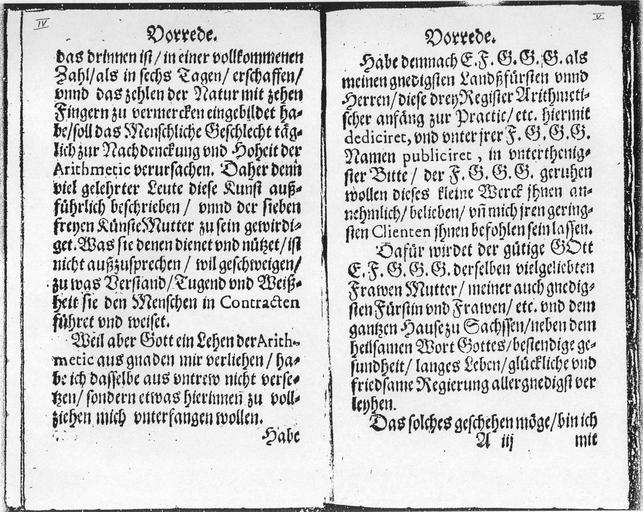 IV
Vorrede.
das drinnen ist / in einer vollkommenen
Zahl / als in sechs Tagen / erschaffen /
vnnd das zehlen der Natur mit zehen
Fingern zu vermercken eingebildet ha-
be / soll das Menschliche Geschlecht täg-
lich zur Nachdenckung vnd Hoheit der
Arithmetic verursachen. Daher denn
viel gelehrter Leute diese Kunst auß-
führlich beschrieben / vnnd der sieben
freyen Künste Mutter zu sein gewirdi-
get. Was sie denen dienet vnd nützet / ist
nicht außzusprechen / wil geschweigen /
zu was Verstand / Tugend vnd Weiß-
heit sie den Menschen in Contracten
führet vnd weiset.
Weil aber Gott ein Lehen der Arith-
metic aus gnaden mir verliehen / ha-
be ich dasselbe aus vntrew nicht verse-
tzen / sondern etwas hierinnen zu voll-
ziehen mich vnterfangen wollen.
Habe
V
Vorrede.
Habe demnach E. F. G. G. G. als
meinen gnedigsten Landßfürsten vnnd
Herren / diese drey Register Arithmeti-
scher anfäng zur Practic / etc. hiermit
dediciret, vnd vnter jrer F. G. G. G.
Namen publiciret, in vnterthenig-
ster Bitte / der F. G. G. G. geruhen
wollen dieses kleine Werck jhnen an-
nehmlich / belieben / vñ mich jren gering-
sten Clienten jhnen befohlen sein lassen.
Dafür wird et der gütige GOtt
E. F. G. G. G. derselben vielgeliebten
Frawen Mutter / meiner auch gnedig-
sten Fürstin vnd Frawen / etc. vnd dem
gantzen Hause zu Sachssen / neben dem
heilsamen Wort Gottes / bestendige ge-
sundheit / langes Leben / glückliche vnd
friedsame Regierung allergnedigst ver
leyhen.
Das solches geschehen möge / bin ich
A iij mit